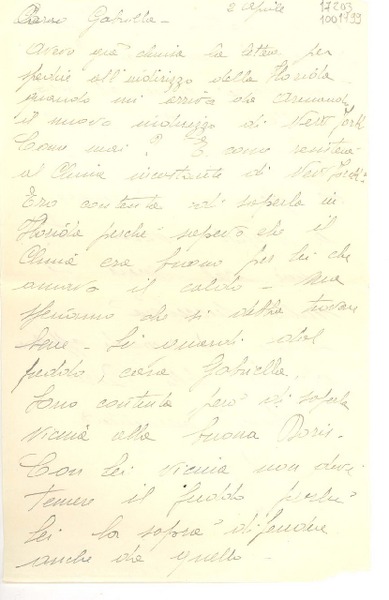 2 Aprile
17203
1001799
Cara Gabriella -
Avevo già chiusa la lettera per
spedire all'indirizzo della Florida
quando mi arriva da Armando
il nuovo indirizzo di New York
Come mai? E come resisterà
al Clima incostante di New York?
Ero contenta di saperla in
Florida perchè sapevo che il
Clima era buono per lei che
amava il caldo - Ma
speriamo che si debba trovare
bene - Si guardi dal
freddo, cara Gabriella.
Sono contenta però di saperla
vicina alla buona Doris.
Con Lei vicina non deve
temere il freddo perchè
Lei la saprà difendere
anche da quello -